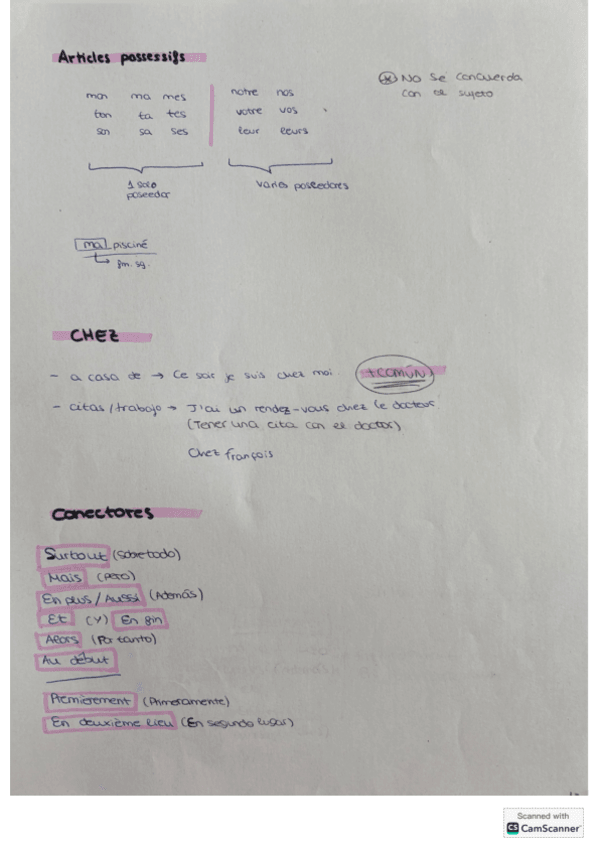 Articles possessifs
mon ma mes
ton ta tes
son sa ses
notre nos
votre vos
leur leurs
* No se concuerda
con el sujeto
1 solo
poseedor
varios poseedores
ma piscine
fm. sg.
CHEZ
- a casa de → Ce soir je suis chez moi. +COMÚN
- citas/trabajo → J'ai un rendez-vous chez le docteur.
(Tener una cita con el doctor)
Chez françois
Conectores
Surtout (sobretodo)
Mais (pero)
En plus / Aussi (Además)
Et (Y) En fin
Alors (Por tanto)
Au début
Premièrement (Primeramente)
En deuxième lieu (En segundo lugar)
Scanned with
CS CamScanner